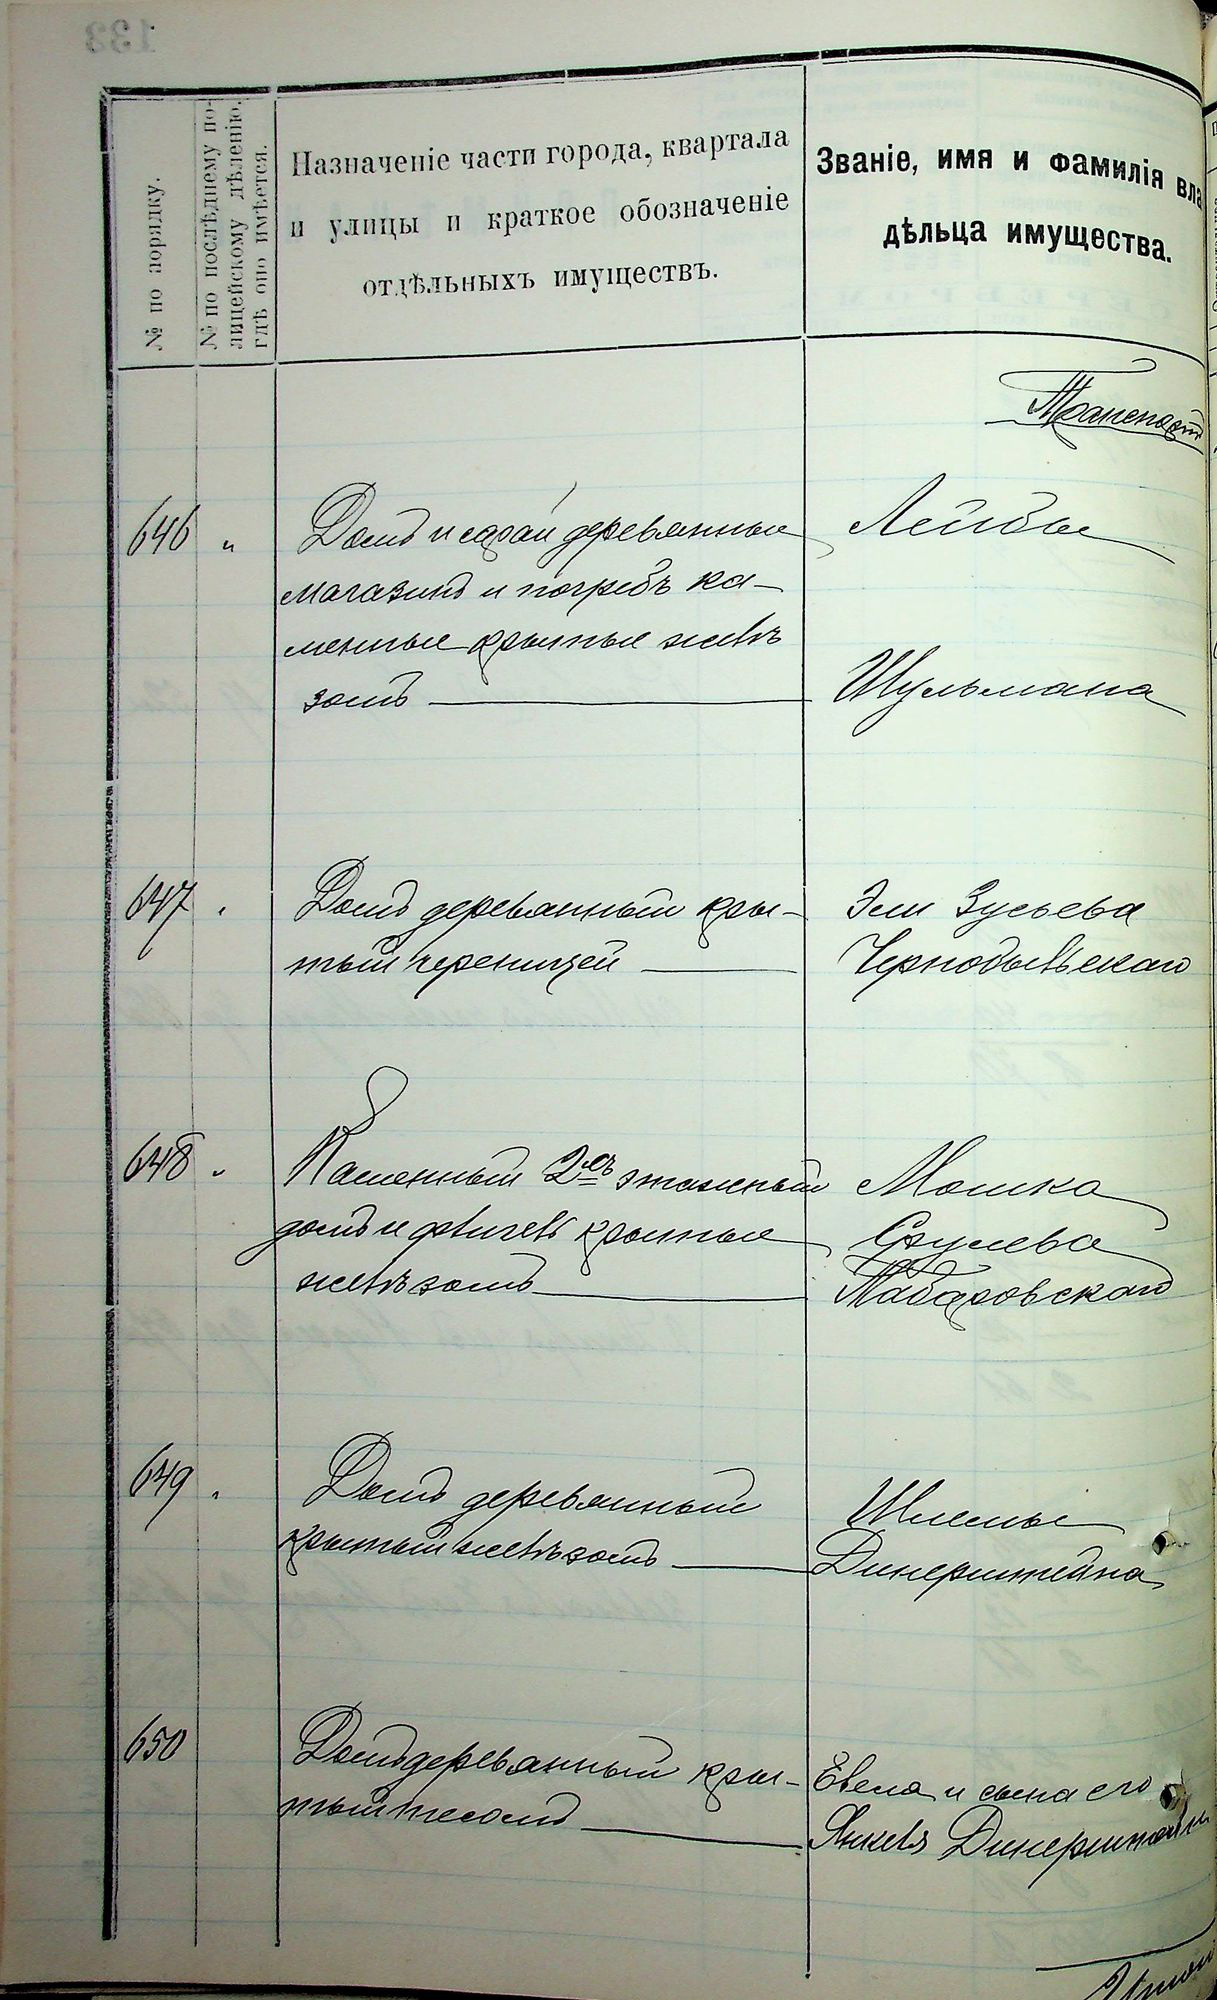 133
№ по порядку.
№ по послѣднему по-
лицейскому дѣленію,
гдѣ оно имѣется.
Назначеніе части города, квартала
и улицы и краткое обозначеніе
отдѣльныхъ имуществъ.
Званіе, имя и фамилія вла
дѣльца имущества.
Транспортъ
646 „ Домъ и сарай деревянные
магазинъ и погребъ ка-
менные крытые желѣ
зомъ
Лейбы
Шульмана
647 „ Домъ деревянный кры-
тый черепицей
Эли Зусьева
Чернобыльскаго
648 „ Каменный 2хъ этажный
домъ и флигель крытые
желѣзомъ
Мошка
Срулева
Табаровскаго
649 „ Домъ деревянный
крытый желѣзомъ
Шлемы
Динерштейна
650 Домъ деревянный кры-
тый тесомъ
Евеля и сына его
Янкеля Динерштейн
Итого